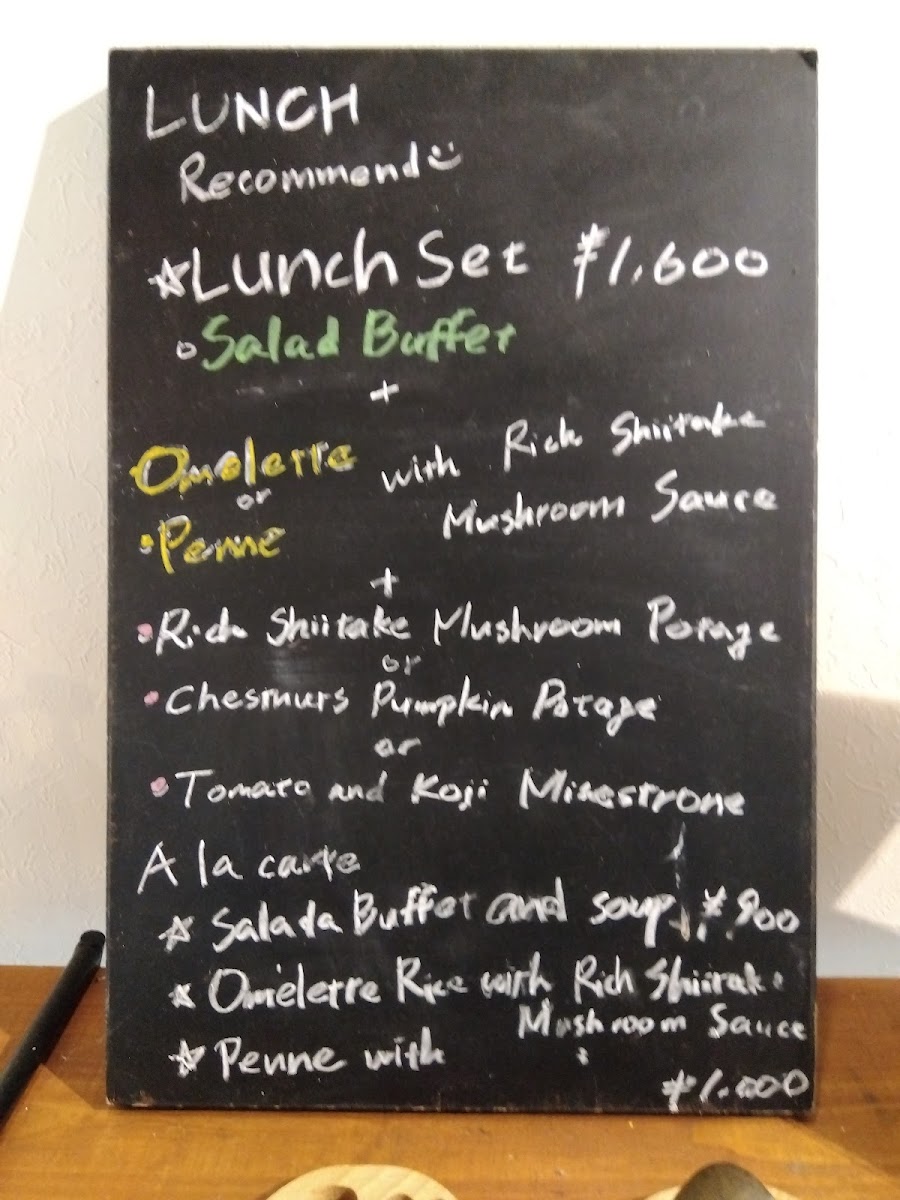 LUNCH
Recommend
Lunch Set ¥1,600
Salad Buffet
+
Omelette with Rich Shiitake
or
Penne Mushroom Sauce
+
Rich Shiitake Mushroom Potage
or
Chestnuts Pumpkin Potage
or
Tomato and Koji Minestrone
A la carte
Salada Buffet and soup ¥900
Omelette Rice with Rich Shiitake
Mushroom Sauce
Penne with :
¥1,000